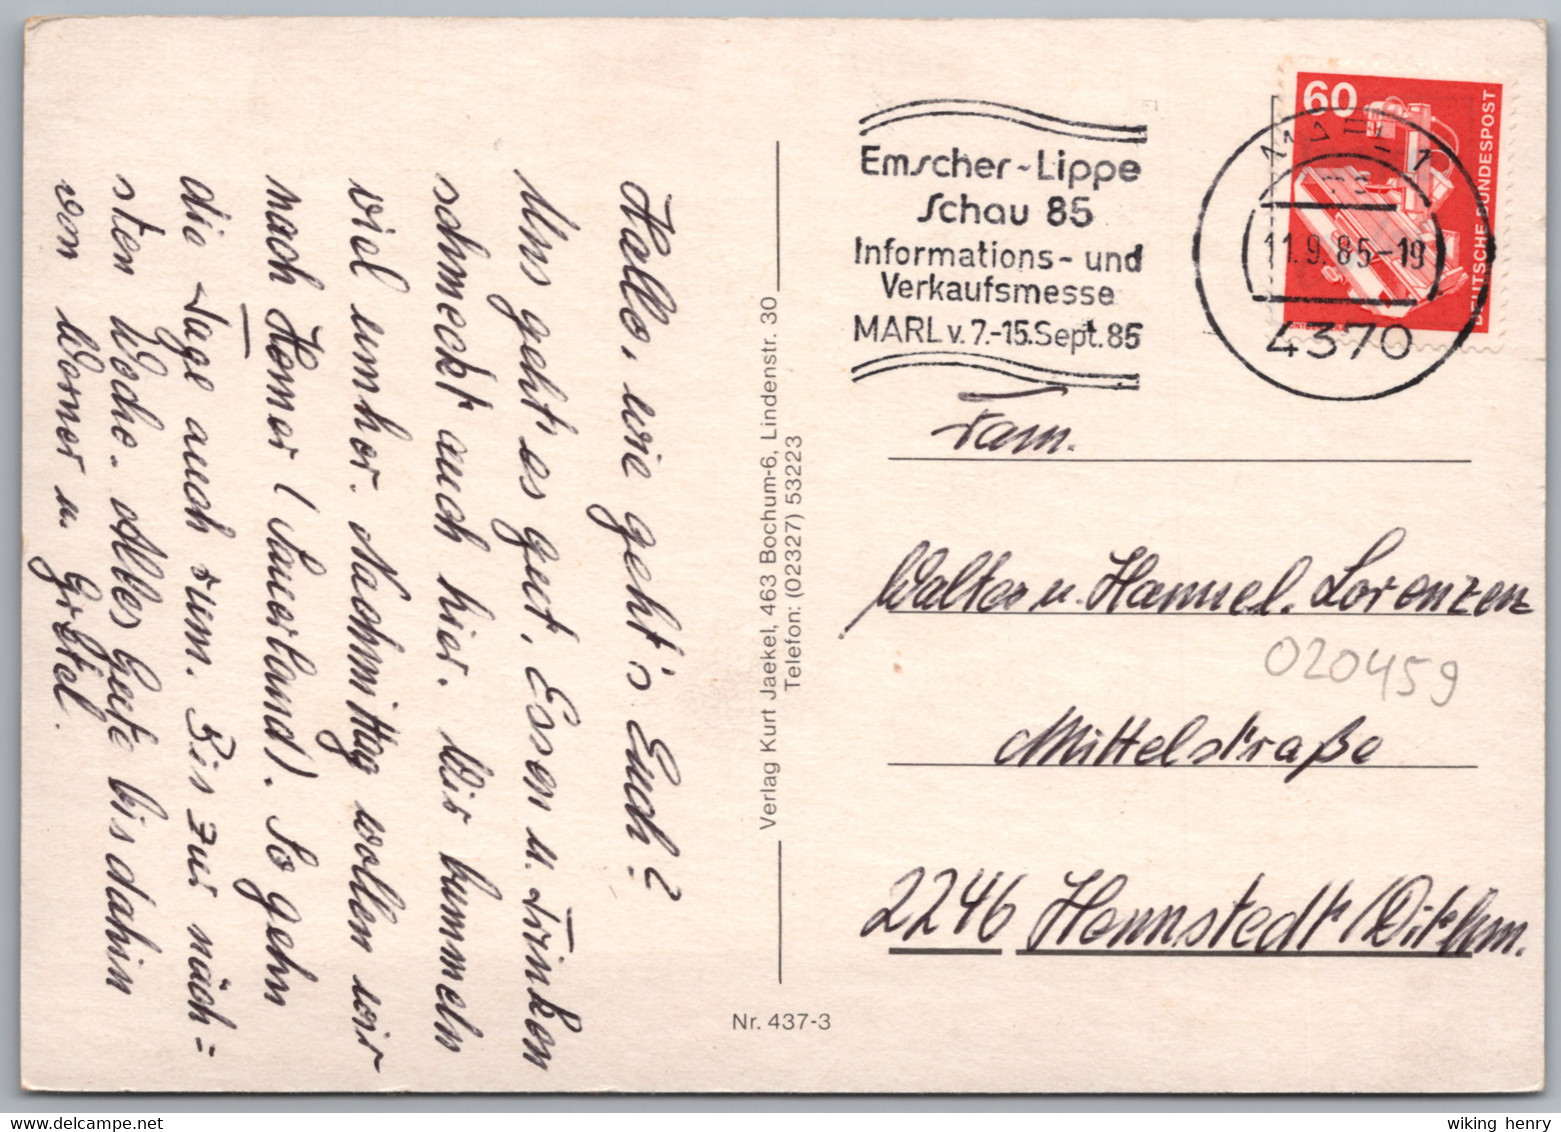 Hallo, wie geht's Euch?
Uns geht es gut. Essen u. Trinken
schmeckt auch hier. Wir bummeln
viel umher. Nachmittag wollen wir
nach Hemer (Sauerland). So gehn
die Tage auch rum. Bis zur näch=
sten Woche. Alles Gute bis dahin
von Werner u. Gretel.
Verlag Kurt Jaekel, 463 Bochum-6, Lindenstr. 30
Telefon: (02327) 53223
Nr. 437-3
Emscher-Lippe
Schau 85
Informations- und
Verkaufsmesse
MARL v. 7.-15. Sept. 85
MARL 1
11.9.85-19
4370
60
DEUTSCHE BUNDESPOST
Fam.
Walter u. Hannel. Lorenzen
020459
Mittelstraße
2246 Hennstedt/Dithm.
wiking henry